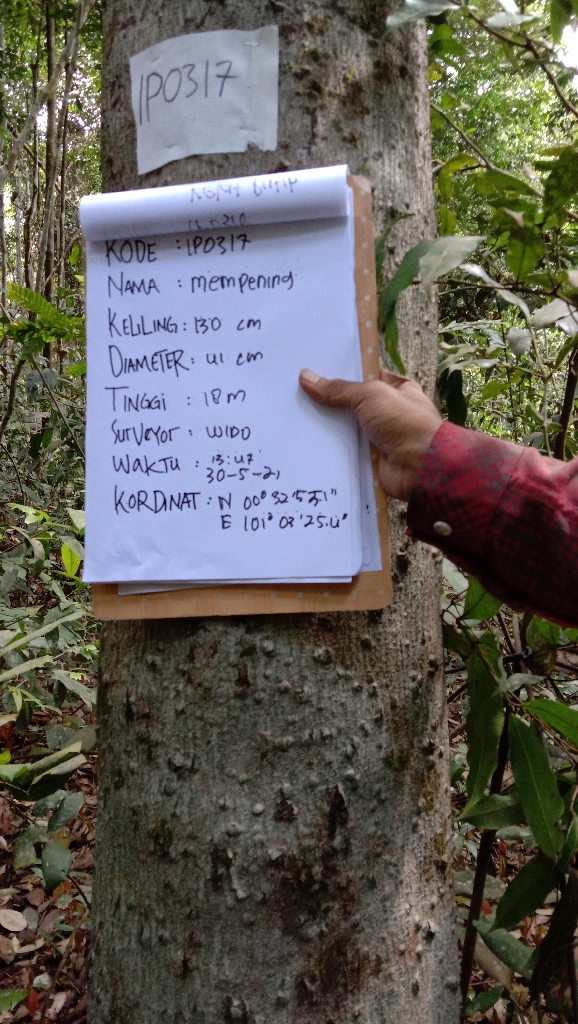 1P0317
KODE : 1P0317
NAMA : mempening
KELILING : 130 cm
DIAMETER : 41 cm
TINGGI : 18 m
SURVEYOR : WIDO
WAKTU : 13:47
30-5-21
KORDINAT : N 00° 32'
E 101° 03 '25.4"